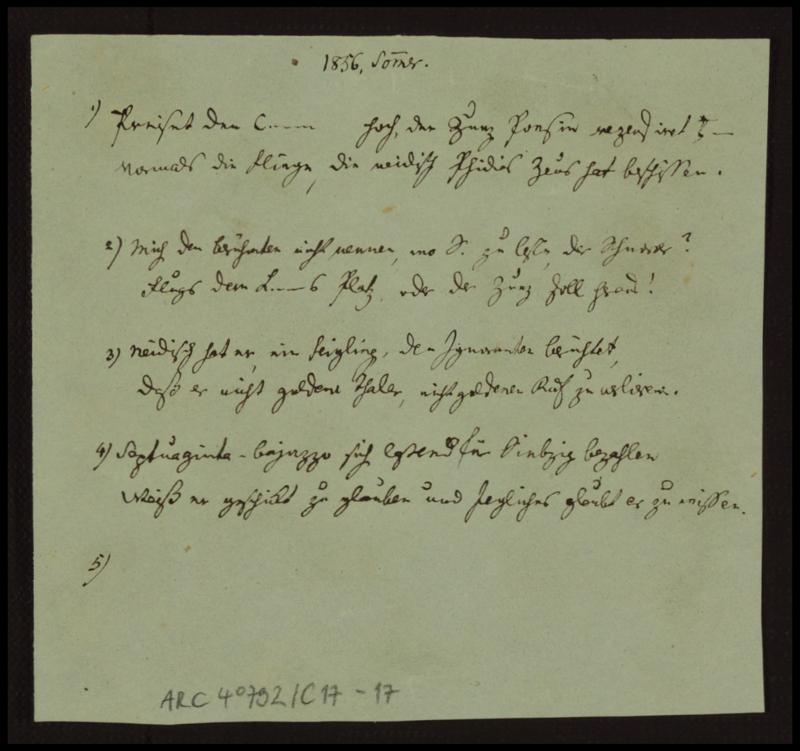 1856, Som̅er.
1) Preiset den C---- hoch, der Zunz Poesie rezensiret
Vormals die Fliege, die neidisch Phidias Zeus hat beschissen.
2) Mich den berühmten nicht nennen, wo S. zu lesen, der Schnorrer?
Flugs dem L----s Platz, oder der Zunz soll heraus!
3) Neidisch hat er, ein Feigling, den Ignoranten berichtet,
Daß er nicht goldene Thaler, nicht goldenen Ruf zu verlieren.
4) Septuaginta-bajazzo sich lassend für Siebzig bezahlen
Weiß er geschickt zu glauben und Jegliches glaubt er zu wissen.
5)
ARC 4° 792/C17-17